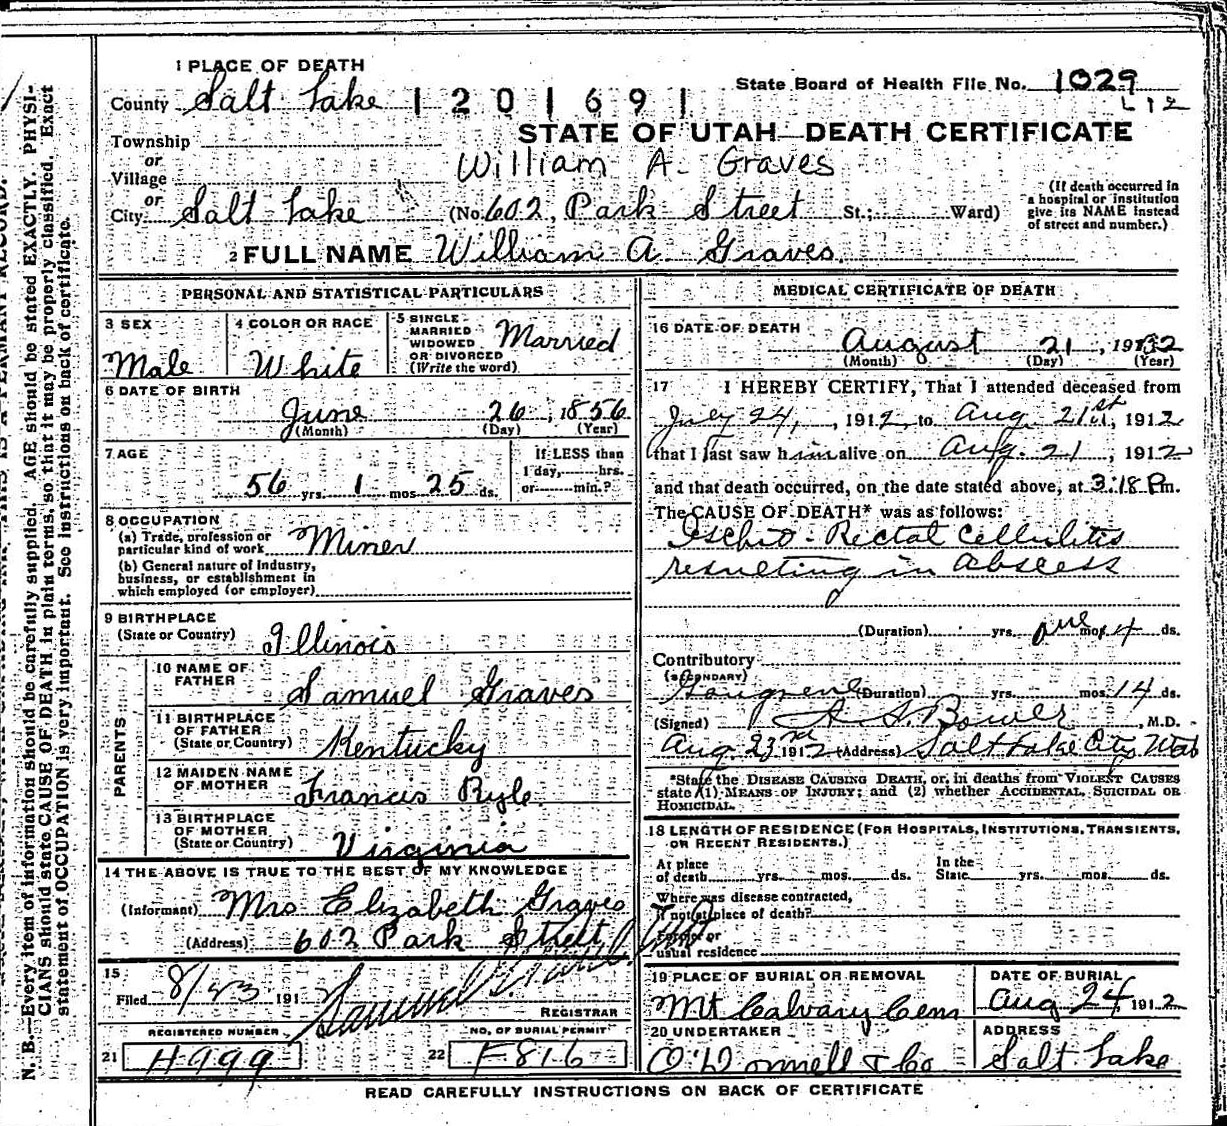 1 PLACE OF DEATH
County Salt Lake 1201691
State Board of Health File No. 1029
L 12
STATE OF UTAH—DEATH CERTIFICATE
Township
or
Village
William A. Graves
or
City Salt Lake (No. 602, Park Street St.; Ward)
(If death occurred in a hospital or institution give its NAME instead of street and number.)
2 FULL NAME William A. Graves
PERSONAL AND STATISTICAL PARTICULARS
3 SEX
Male
4 COLOR OR RACE
White
5 SINGLE MARRIED WIDOWED OR DIVORCED (Write the word)
Married
6 DATE OF BIRTH
June 26, 1856
(Month) (Day) (Year)
7 AGE
56 yrs. 1 mos. 25 ds.
If LESS than
1 day, hrs.
or min.?
8 OCCUPATION
(a) Trade, profession or
particular kind of work Miner
(b) General nature of industry,
business, or establishment in
which employed (or employer)
9 BIRTHPLACE
(State or Country) Illinois
PARENTS
10 NAME OF
FATHER Samuel Graves
11 BIRTHPLACE
OF FATHER
(State or Country) Kentucky
12 MAIDEN NAME
OF MOTHER Francis Ryle
13 BIRTHPLACE
OF MOTHER
(State or Country) Virginia
14 THE ABOVE IS TRUE TO THE BEST OF MY KNOWLEDGE
(Informant) Mrs Elizabeth Graves
(Address) 602 Park Street
15
Filed 8/23 191
REGISTRAR
REGISTERED NUMBER
21 H999
NO. OF BURIAL PERMIT
22 F816
MEDICAL CERTIFICATE OF DEATH
16 DATE OF DEATH
August 21, 1912
(Month) (Day) (Year)
17 I HEREBY CERTIFY, That I attended deceased from
July 24, 1912, to Aug. 21st, 1912
that I last saw him alive on Aug. 21, 1912
and that death occurred, on the date stated above, at 3:18 Pm.
The CAUSE OF DEATH* was as follows:
Ischio-Rectal Cellulitis
resulting in abscess
(Duration) yrs. one mos. 4 ds.
Contributory
(SECONDARY)
Gangrene (Duration) yrs. mos. 14 ds.
(Signed) A. S. Bower, M.D.
Aug. 23rd 1912 (Address) Salt Lake City Utah
*State the DISEASE CAUSING DEATH, or, in deaths from VIOLENT CAUSES
state (1) MEANS OF INJURY; and (2) whether ACCIDENTAL, SUICIDAL OR
HOMICIDAL.
18 LENGTH OF RESIDENCE (FOR HOSPITALS, INSTITUTIONS, TRANSIENTS,
OR RECENT RESIDENTS.)
At place
of death yrs. mos. ds.
In the
State yrs. mos. ds.
Where was disease contracted,
if not at place of death?
Former or
usual residence
19 PLACE OF BURIAL OR REMOVAL
Mt Calvary Cem
DATE OF BURIAL
Aug 24, 1912
20 UNDERTAKER
O'Donnell & Co
ADDRESS
Salt Lake
READ CAREFULLY INSTRUCTIONS ON BACK OF CERTIFICATE
N. B.—Every item of information should be carefully supplied. AGE should be stated EXACTLY. PHYSI-
CIANS should state CAUSE OF DEATH in plain terms, so that it may be properly classified. Exact
statement of OCCUPATION is very important. See instructions on back of certificate.